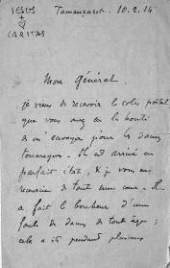 JESUS
CARITAS
Tamanrasset. 10.2.14
Mon Général.
Je viens de recevoir le colis postal
que vous avez eu la bonté
de m'envoyer pour les dames
touarègues. Il est arrivé en
parfait état, & je vous en
remercie de tout mon cœur. Il
a fait le bonheur d'une
foule de dames de tout âge :
cela a été pendant plusieurs